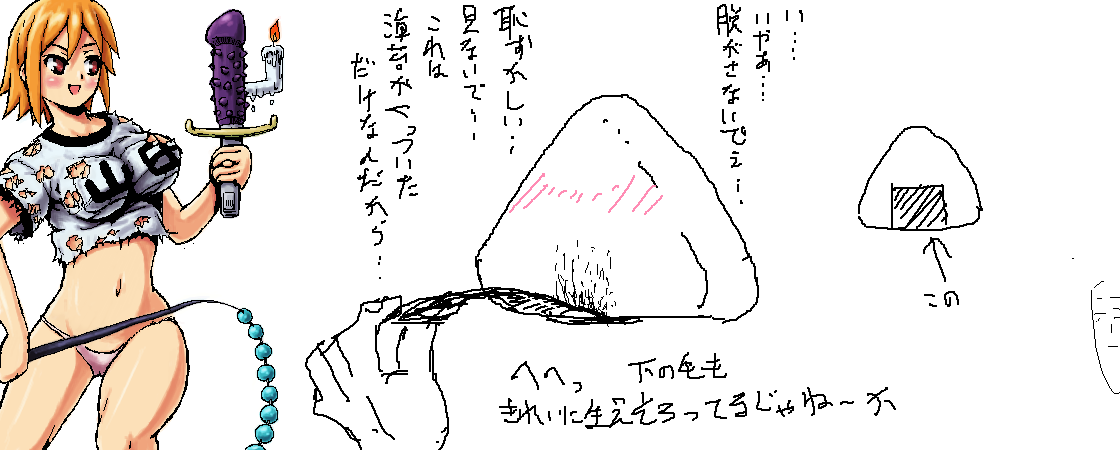 い…
いやあ…
脱がさないでえ…
恥ずかしい…
見ないで…
これは
海苔がくっついた
だけなんだから…
この
へへっ 下の毛も
きれいに生えそろってるじゃねーか